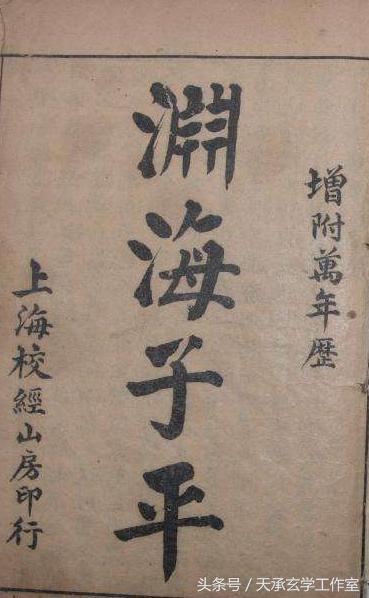 增附萬年歷
淵海子平
上海校經山房印行
头条号 / 天承玄学工作室